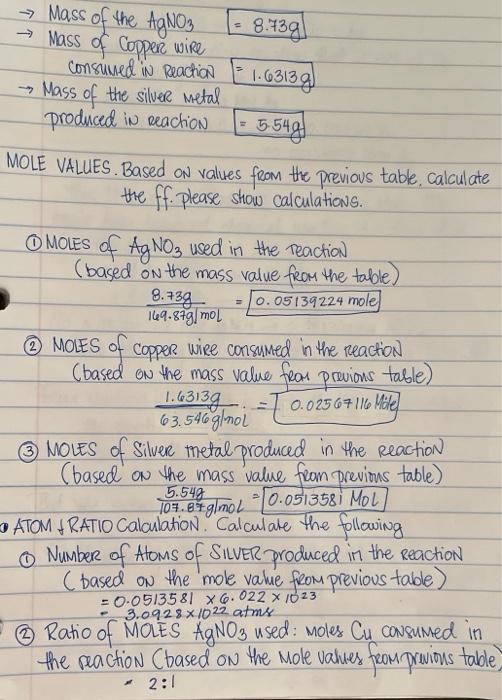 → Mass of the AgNO₃ = 8.73g
→ Mass of Copper wire
consumed in Reaction = 1.6313g
→ Mass of the silver metal
produced in reaction = 5.54g
MOLE VALUES. Based on values from the previous table, calculate
the ff. please show calculations.
① MOLES of AgNO₃ used in the reaction
(based on the mass value from the table)
8.73g
= 0.05139224 mole
169.87g/mol
② MOLES of copper wire consumed in the reaction
(based on the mass value from previous table)
1.6313g
= 0.02567116 Mole
63.546g/mol
③ MOLES of Silver metal produced in the Reaction
(based on the mass value from previous table)
5.54g
= 0.0513581 Mol
107.87g/mol
• ATOM & RATIO Calculation. Calculate the following
① Number of Atoms of SILVER produced in the reaction
(based on the mole value from previous table)
= 0.0513581 x 6.022 x 10²³
= 3.0928 x 10²² atms
② Ratio of MOLES AgNO₃ used: moles Cu consumed in
the reaction (based on the Mole values from previous table)
- 2:1